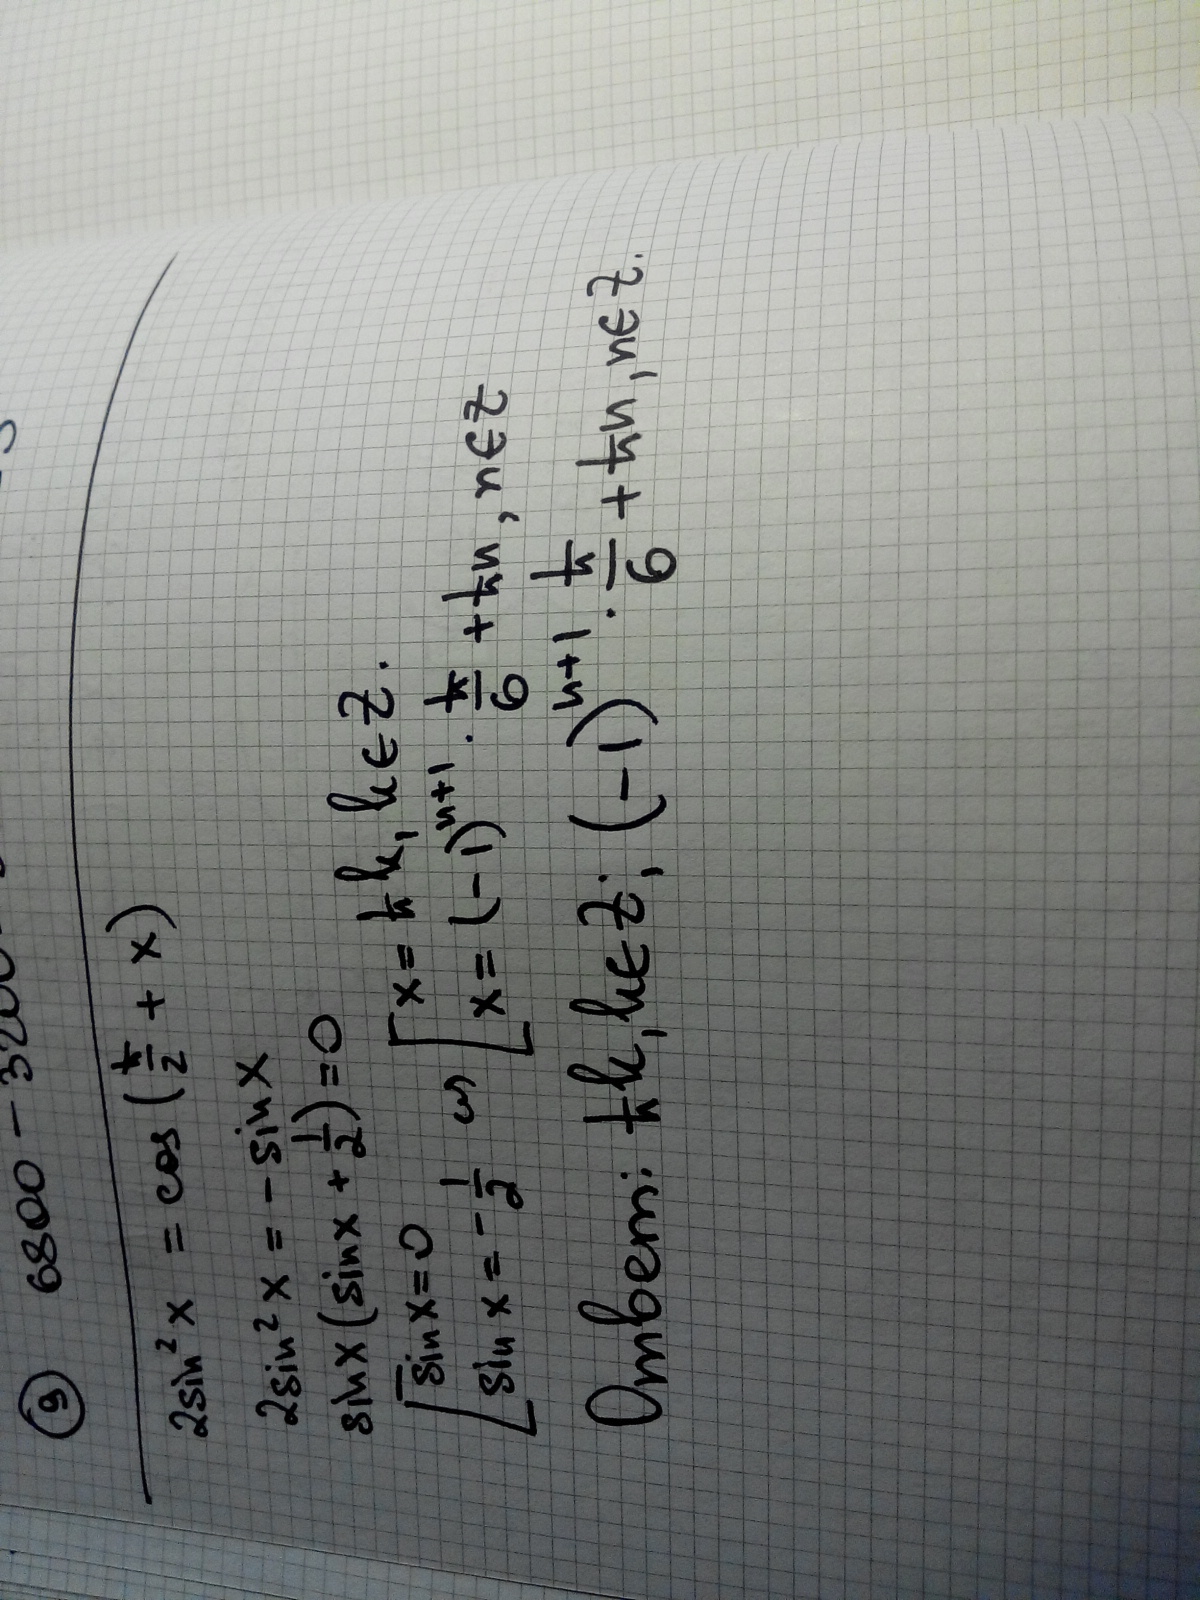 ⑨ 6800 - 3200
2sin²x = cos(π/2 + x)
2sin²x = - sin x
sin x (sin x + 1/2) = 0
[ sin x = 0 [ x = πk, k ∈ Z.
[ sin x = - 1/2 ⇔ [ x = (-1)ⁿ⁺¹ · π/6 + πn, n ∈ Z
Ответ: πk, k ∈ Z; (-1)ⁿ⁺¹ · π/6 + πn, n ∈ Z.